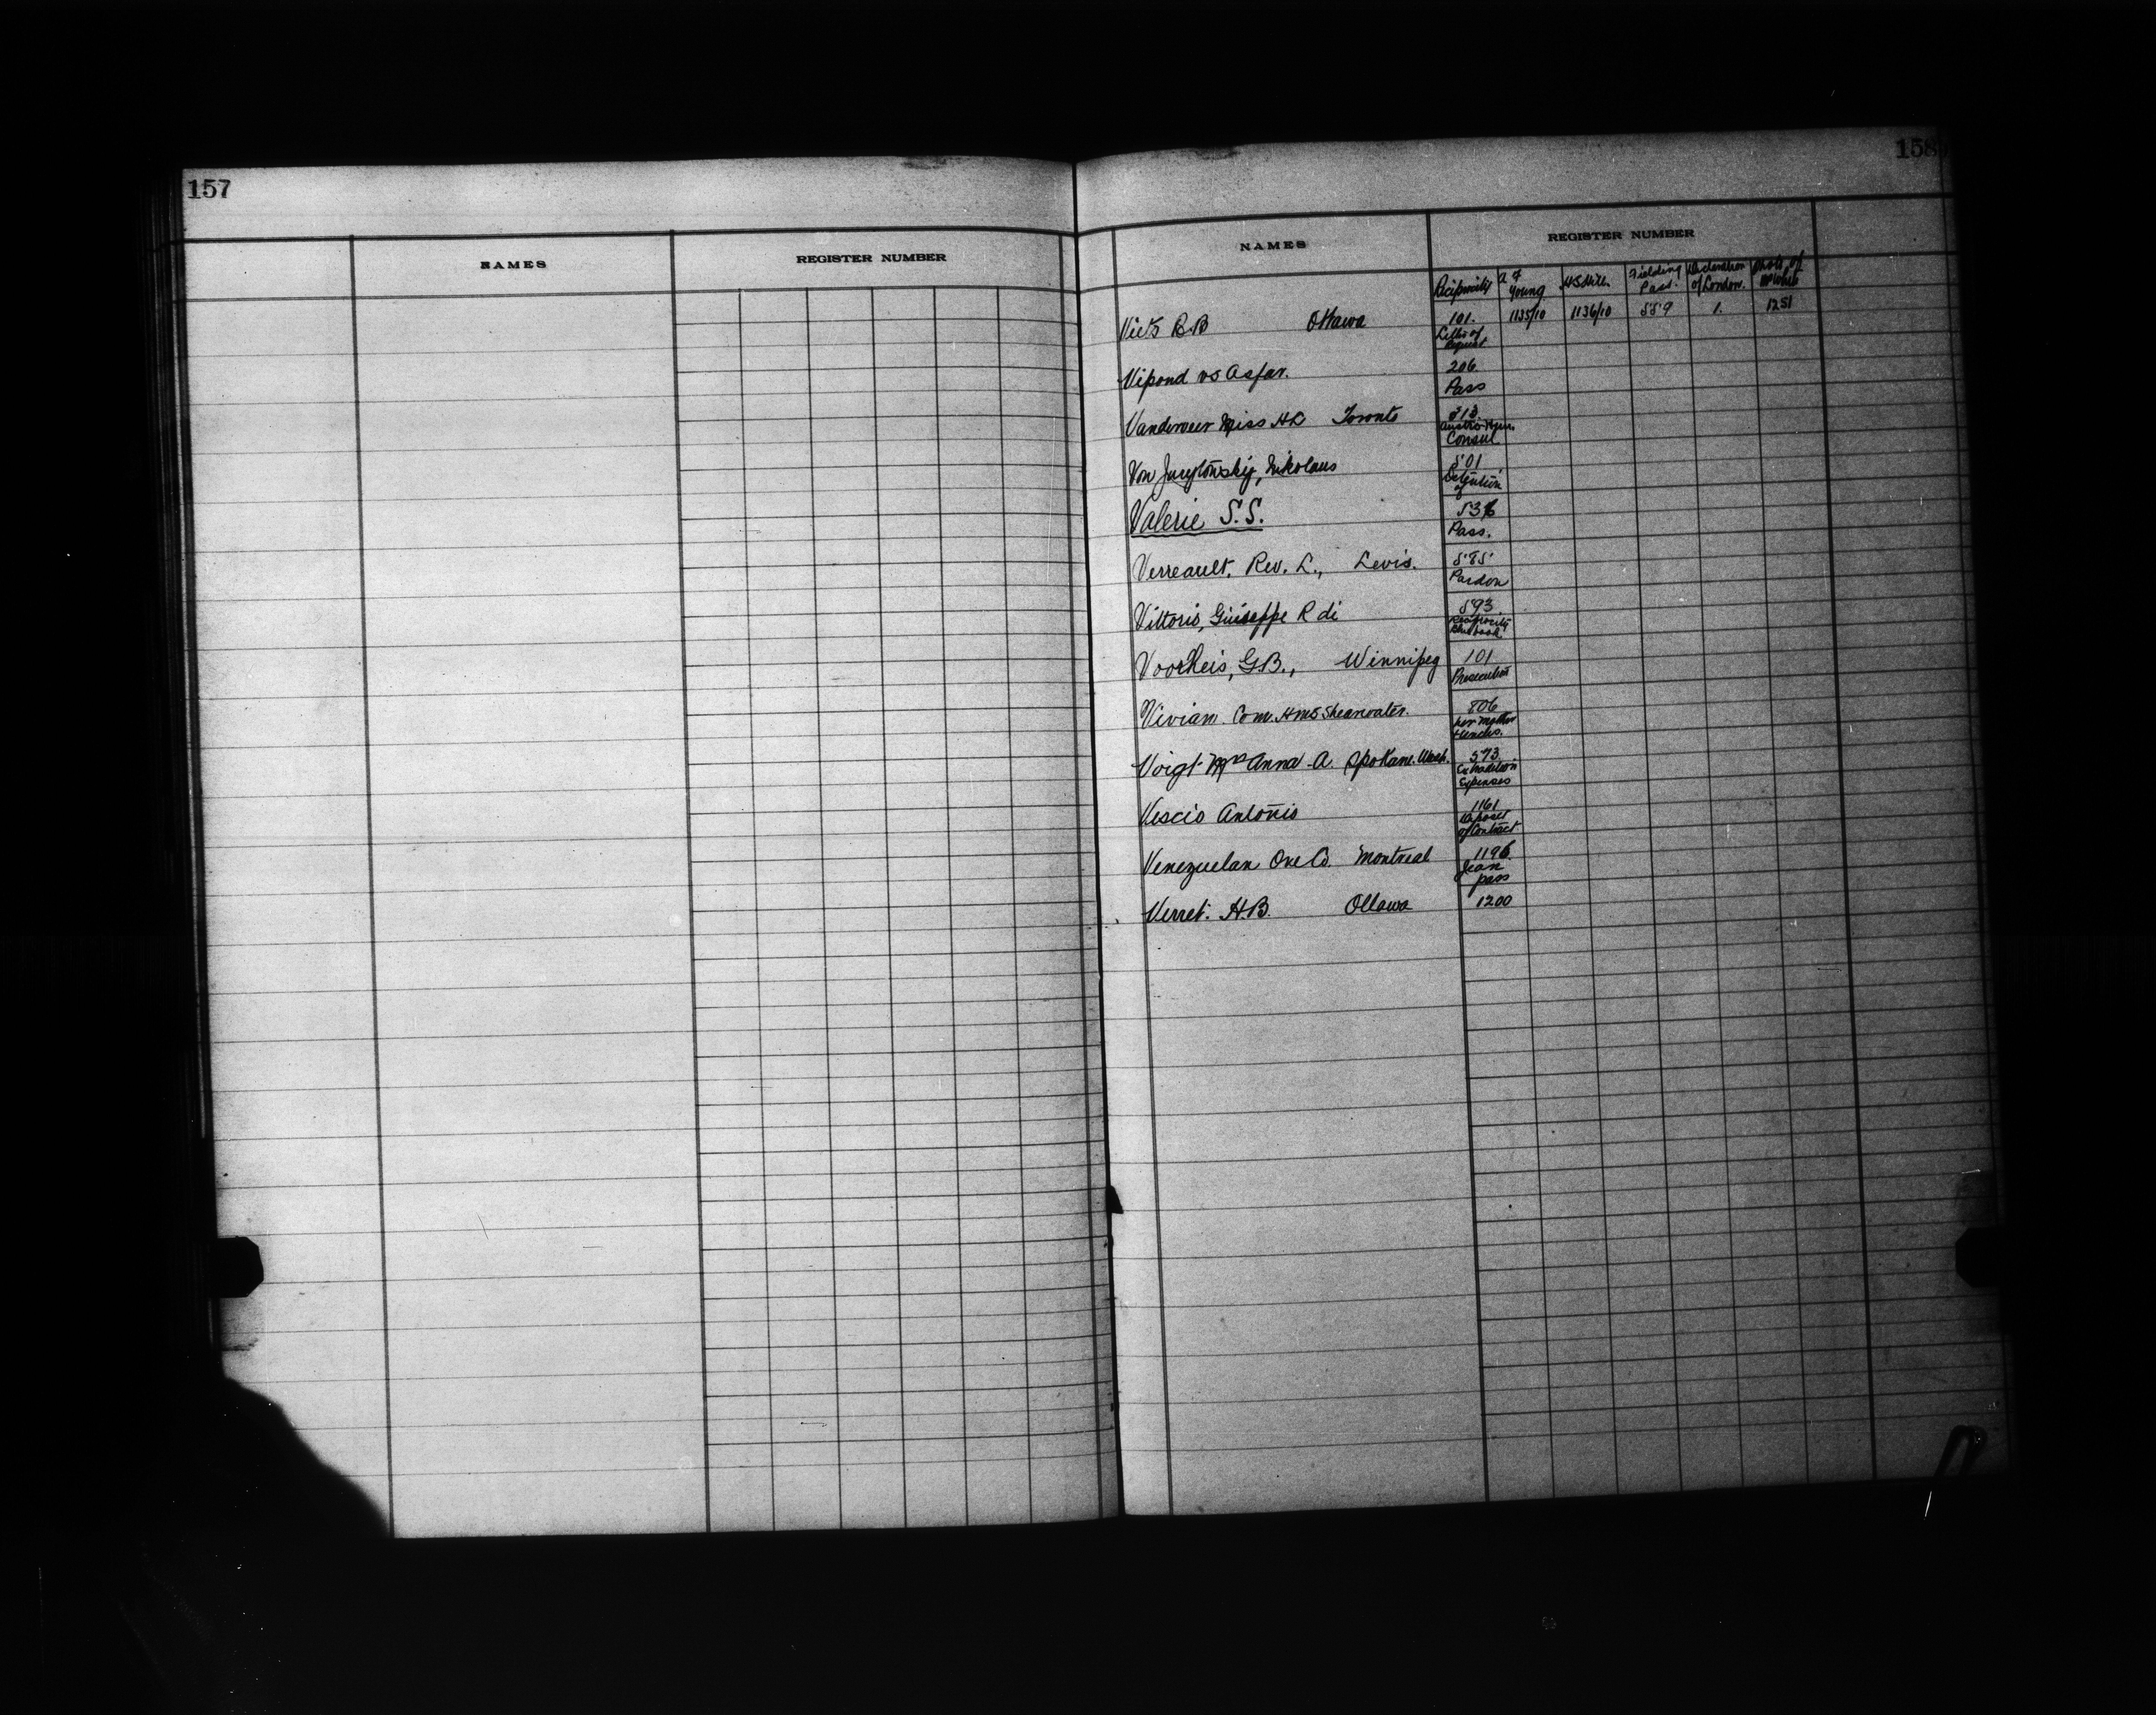 157
NAMES REGISTER NUMBER
158
NAMES REGISTER NUMBER
Reciprocity A F Young H S Hill Fielding Pass. Declaration of London.
Viets R B Ottawa 101. 1135/10 1136/10 559 1. 1251
Letters of Request
Vipond vs Asfar. 206.
Pass
Vanderveer Miss H L Toronto 313.
Austro-Hun. Consul
Von Nikolaus 501
Detention of
Valerie S.S. 536
Pass.
Verreault, Rev. L., Levis. 585
Pardon
Vittorio, Giuseppe R di 593.
Reciprocity Blue book
Voorheis, G.B., Winnipeg 101
Prosecution
Vivian Com. HMS Shearwater. 806
her mother
Voigt Mrs Anna A. Spokane. Wash. 573.
Extradition Expenses
Vescio Antonio 1161
Deposit of Contract
Venezuelan Ore Co. Montreal 1196.
Jean pass
Verret. H.B. Ottawa 1200